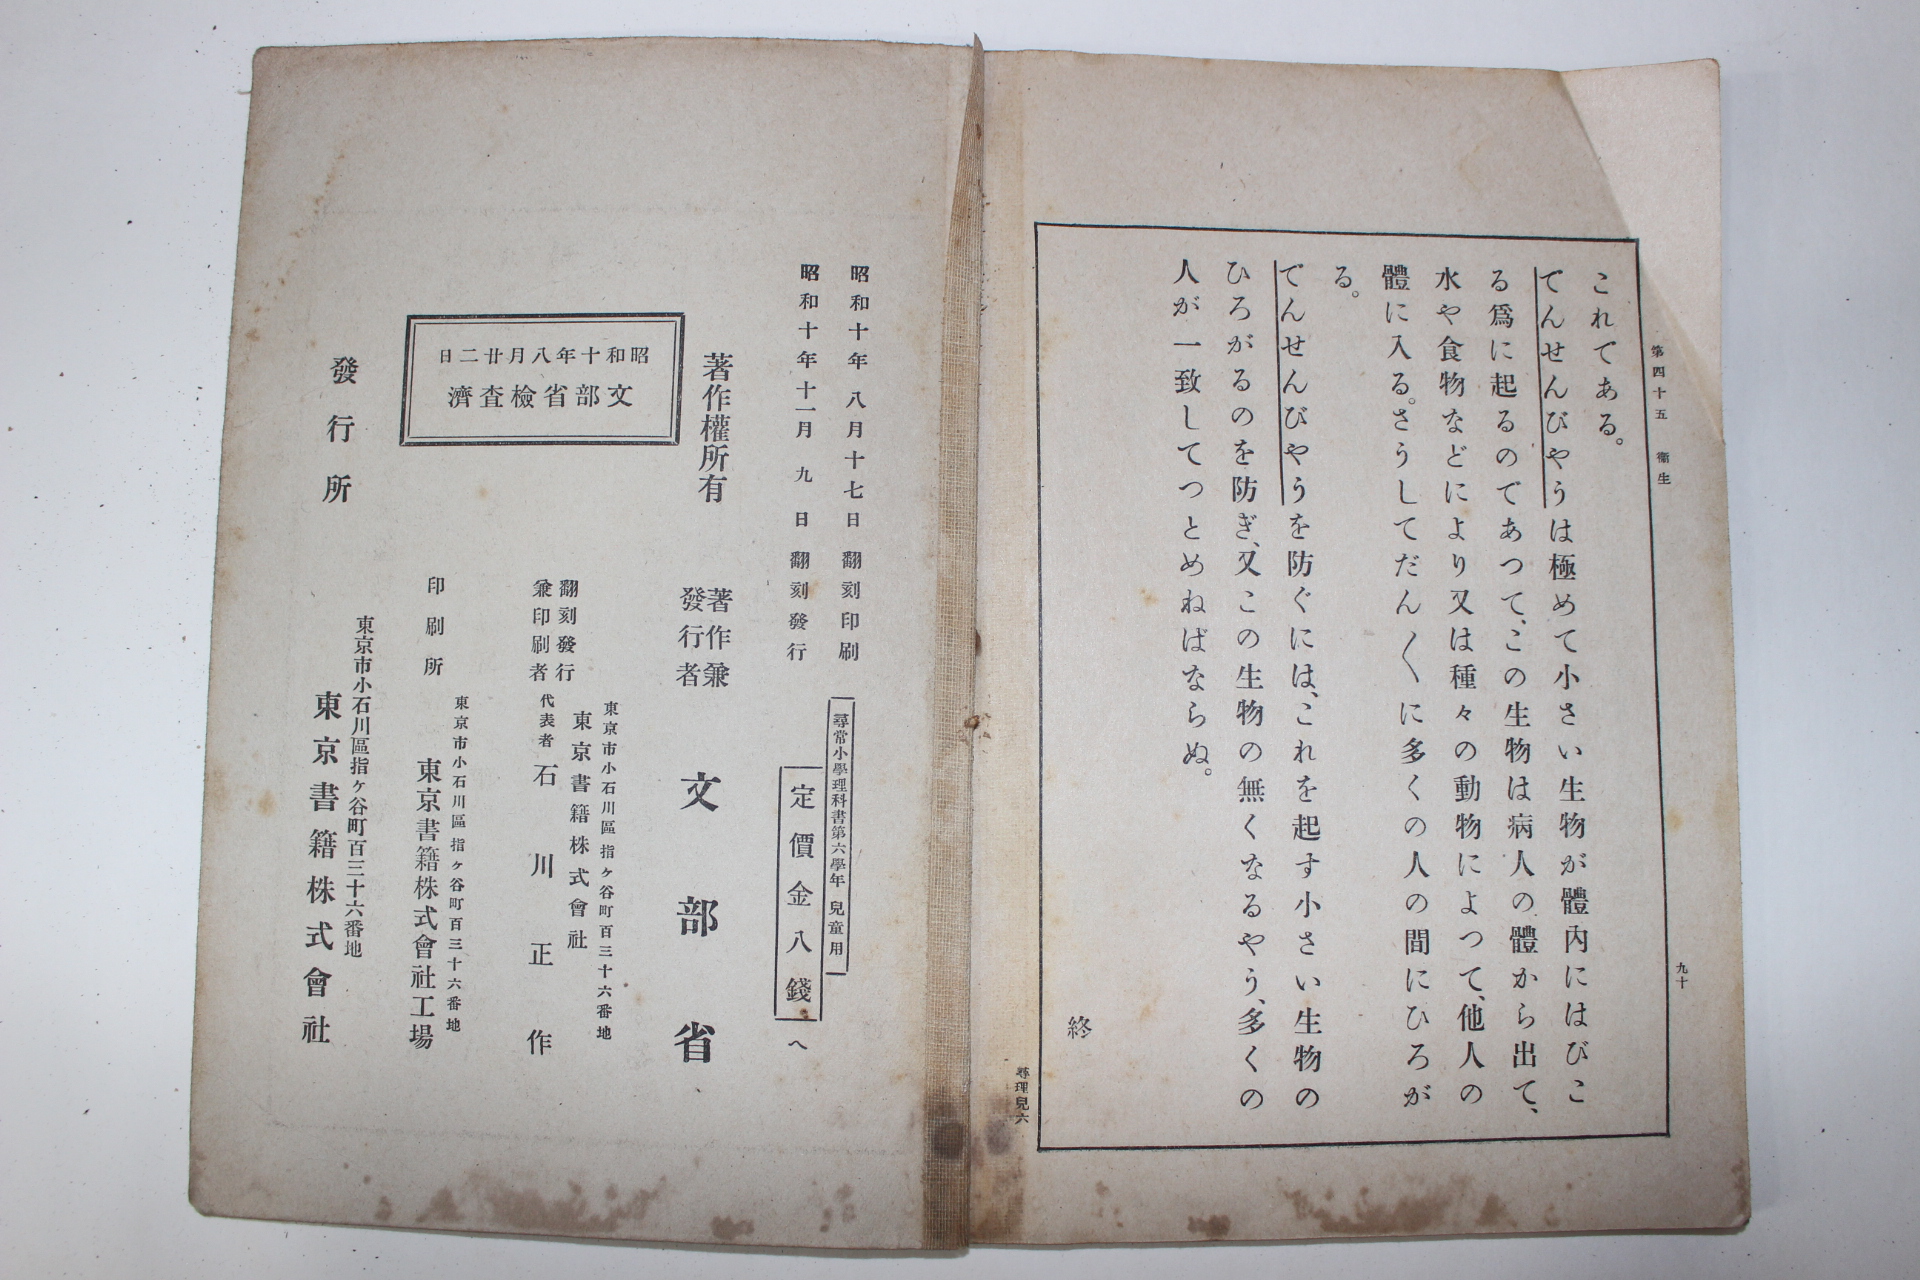 第四十五　衞生
九十
これである。
でんせんびやうは極めて小さい生物が體內にはびこ
る爲に起るのであつて、この生物は病人の體から出て、
水や食物などにより又は種々の動物によつて、他人の
體に入る。さうしてだん〱に多くの人の間にひろが
る。
でんせんびやうを防ぐには、これを起す小さい生物の
ひろがるのを防ぎ、又この生物の無くなるやう、多くの
人が一致してつとめねばならぬ。
終
尋理兒六
昭和十年八月十七日翻刻印刷
昭和十年十一月九日翻刻發行
尋常小學理科書第六學年兒童用
定價金八錢
へ
著作權所有
著作兼
發行者
文部省
翻刻發行
兼印刷者
東京市小石川區指ヶ谷町百三十六番地
東京書籍株式會社
代表者 石川正作
昭和十年八月廿二日
文部省檢査濟
印刷所
東京市小石川區指ヶ谷町百三十六番地
東京書籍株式會社工場
發行所
東京市小石川區指ヶ谷町百三十六番地
東京書籍株式會社